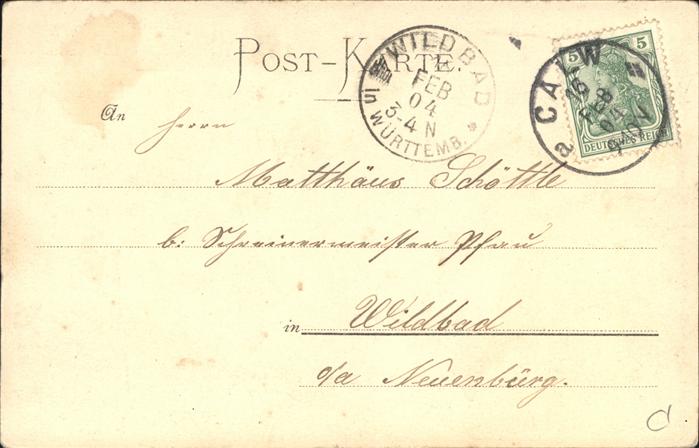 POST-KARTE.
WILDBAD
FEB
04
3-4 N
in WÜRTTEMB.
CALW
16
FEB
04
a
5 5
DEUTSCHES REICH
An Herrn
Matthäus Schöttle
b: Schreinermeister Pfau
in Wildbad
o/a Neuenbürg.